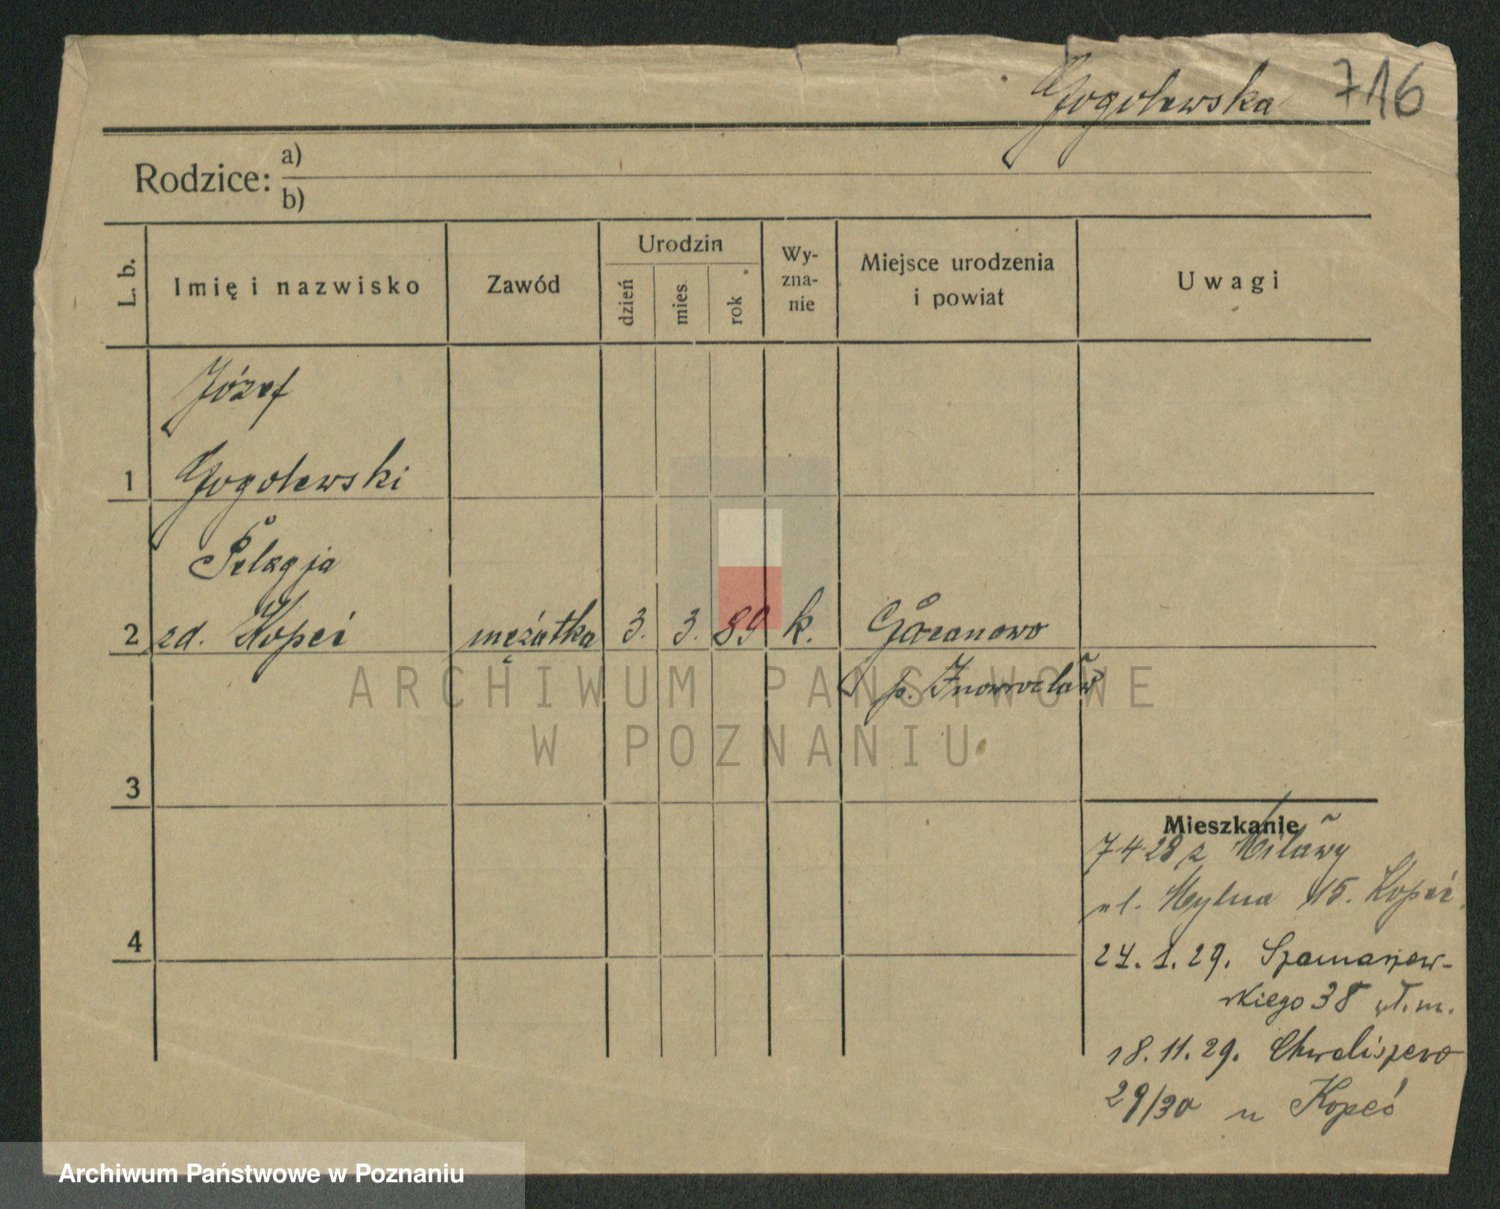 Gogolewska 716
Rodzice: a)
b)
L. b.
Imię i nazwisko
Zawód
Urodzin
dzień
mies.
rok
Wy-
zna-
nie
Miejsce urodzenia
i powiat
Uwagi
Józef
1 Gogolewski
Pelagja
2 zd. Kopeć mężatka 3. 3. 89 k.
p. Inowrocław
ARCHIWUM PAŃSTWOWE
W POZNANIU
3
Mieszkanie
7 4 28 z Miławy
ul. Mylna 15. Kopeć.
4
24.1.29. Szamarzew-
skiego 38 wł. m.
18.11.29. Chwaliszewo
29/30 u Kopeć
Archiwum Państwowe w Poznaniu